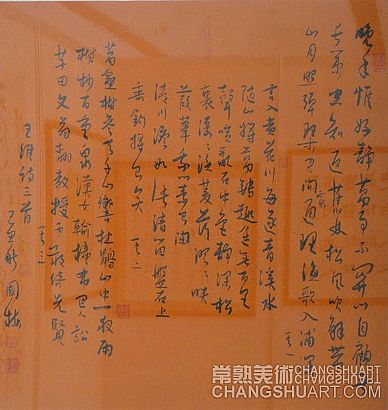 晚年惟好静萬事不關心自顧無
長策空知返舊林松風吹解帶
山月照彈琴君問窮通理漁歌入浦深 其一
言入黄花川每逐青溪水
隨山將萬轉趣途無百里
聲喧亂石中色静深松
裏漾漾泛菱荇澄澄映
葭葦我心素已閑
清川澹如此請留盤石上
垂釣將已矣 其二
萬壑樹參天千山響杜鵑山中一夜雨
樹杪百重泉漢女輸橦布巴人訟
芋田文翁翻教授不敢依先賢 其三
王維詩三首
丁亥秋國
常熟美術 CHANGSHUART
CHANGSHUART.COM